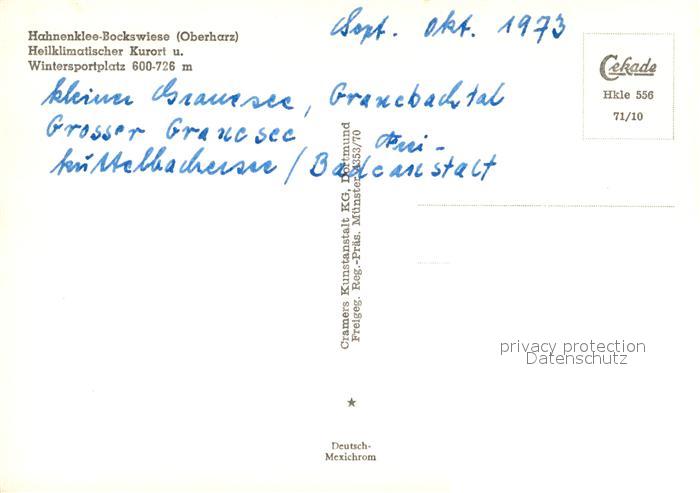 Hahnenklee-Bockswiese (Oberharz)
Heilklimatischer Kurort u.
Wintersportplatz 600-726 m
Sept. Okt. 1973
Cekade
Hkle 556
71/10
kleiner Granesee, Granebachtal
Grosser Granesee
Frei-
kuttelbachersee / Badeanstalt
Cramers Kunstanstalt KG, Dortmund
Freigeg. Reg.-Präs. Münster 4353/70
privacy protection
Datenschutz
Deutsch-
Mexichrom